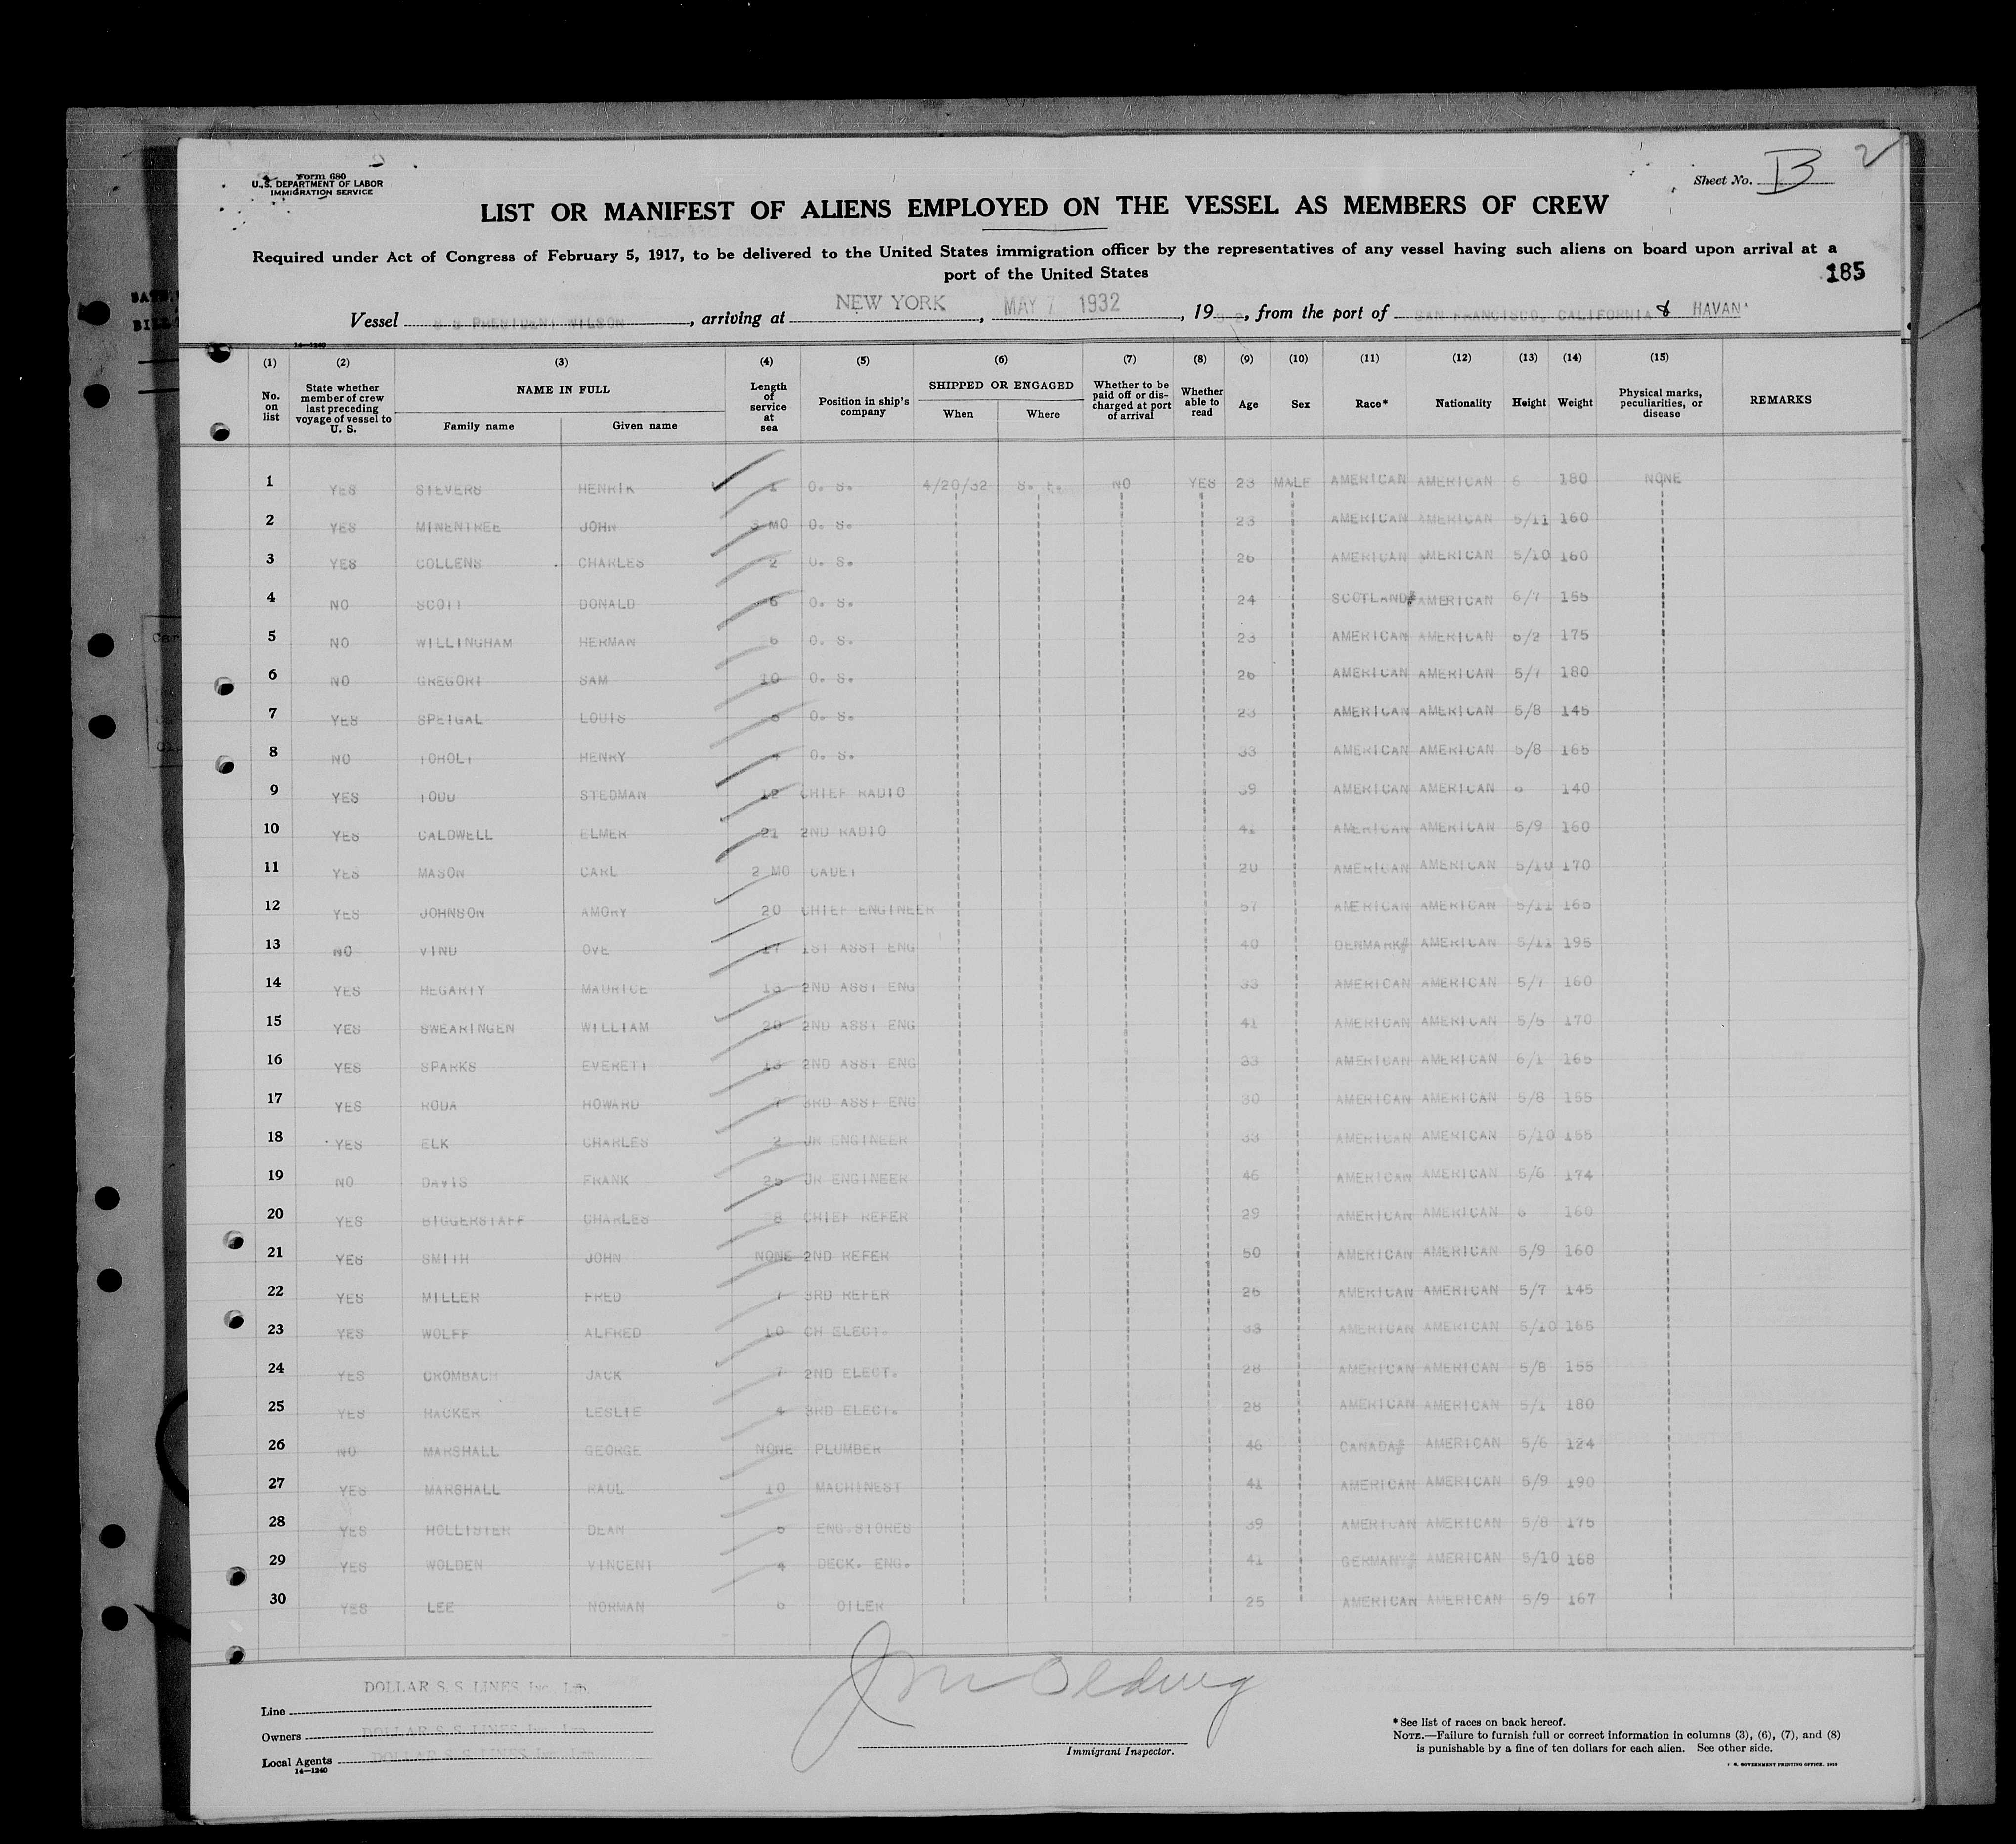 Form 680
U. S. DEPARTMENT OF LABOR
IMMIGRATION SERVICE
Sheet No. B 2
LIST OR MANIFEST OF ALIENS EMPLOYED ON THE VESSEL AS MEMBERS OF CREW
Required under Act of Congress of February 5, 1917, to be delivered to the United States immigration officer by the representatives of any vessel having such aliens on board upon arrival at a
port of the United States
185
Vessel S S PRESIDENT WILSON, arriving at NEW YORK, MAY 7 1932, 19 32, from the port of SAN FRANCISCO, CALIFORNIA & HAVANA
14—1240
(1) (2) (3) (4) (5) (6) (7) (8) (9) (10) (11) (12) (13) (14) (15)
No. on list State whether member of crew last preceding voyage of vessel to U. S. NAME IN FULL Family name Given name Length of service at sea Position in ship's company SHIPPED OR ENGAGED When Where Whether to be paid off or discharged at port of arrival Whether able to read Age Sex Race* Nationality Height Weight Physical marks, peculiarities, or disease REMARKS
1 YES SIEVERS HENRIK 1 O. S. 4/20/32 S. F. NO YES 23 MALE AMERICAN AMERICAN 6 180 NONE
2 YES MINENTREE JOHN 3 MO O. S. 23 AMERICAN AMERICAN 5/11 160
3 YES COLLENS CHARLES 2 O. S. 26 AMERICAN AMERICAN 5/10 160
4 NO SCOTT DONALD 6 O. S. 24 SCOTLAND AMERICAN 6/7 155
5 NO WILLINGHAM HERMAN 6 O. S. 23 AMERICAN AMERICAN 6/2 175
6 NO GREGORI SAM 10 O. S. 26 AMERICAN AMERICAN 5/7 180
7 YES SPEIGAL LOUIS O. S. 23 AMERICAN AMERICAN 5/8 145
8 NO TOHOLT HENRY 4 O. S. 33 AMERICAN AMERICAN 5/8 165
9 YES TODD STEDMAN 12 CHIEF RADIO 39 AMERICAN AMERICAN 6 140
10 YES CALDWELL ELMER 21 2ND RADIO 41 AMERICAN AMERICAN 5/9 160
11 YES MASON CARL 2 MO CADET 20 AMERICAN AMERICAN 5/10 170
12 YES JOHNSON AMORY 20 CHIEF ENGINEER 57 AMERICAN AMERICAN 5/11 165
13 NO VIND OVE 17 1ST ASST ENG 40 DENMARK AMERICAN 5/11 195
14 YES HEGARTY MAURICE 13 2ND ASST ENG 33 AMERICAN AMERICAN 5/7 160
15 YES SWEARINGEN WILLIAM 20 2ND ASST ENG 41 AMERICAN AMERICAN 5/5 170
16 YES SPARKS EVERETT 13 2ND ASST ENG 33 AMERICAN AMERICAN 6/1 165
17 YES RODA HOWARD 7 3RD ASST ENG 30 AMERICAN AMERICAN 5/8 155
18 YES ELK CHARLES 2 JR ENGINEER 33 AMERICAN AMERICAN 5/10 155
19 NO DAVIS FRANK 25 JR ENGINEER 46 AMERICAN AMERICAN 5/6 174
20 YES BIGGERSTAFF CHARLES 8 CHIEF REFER 29 AMERICAN AMERICAN 6 160
21 YES SMITH JOHN NONE 2ND REFER 50 AMERICAN AMERICAN 5/9 160
22 YES MILLER FRED 7 3RD REFER 26 AMERICAN AMERICAN 5/7 145
23 YES WOLFF ALFRED 10 CH ELECT. 33 AMERICAN AMERICAN 5/10 165
24 YES CROMBACH JACK 7 2ND ELECT. 28 AMERICAN AMERICAN 5/8 155
25 YES HACKER LESLIE 4 3RD ELECT. 28 AMERICAN AMERICAN 5/1 180
26 NO MARSHALL GEORGE NONE PLUMBER 46 CANADA AMERICAN 5/6 124
27 YES MARSHALL PAUL 10 MACHINEST 41 AMERICAN AMERICAN 5/9 190
28 YES HOLLISTER DEAN ENG. STORES 39 AMERICAN AMERICAN 5/8 175
29 YES WOLDEN VINCENT 4 DECK. ENG. 41 GERMANY AMERICAN 5/10 168
30 YES LEE NORMAN 6 OILER 25 AMERICAN AMERICAN 5/9 167
Line DOLLAR S. S. LINES, Inc., Ltd.
Owners DOLLAR S. S. LINES, Inc., Ltd.
Local Agents DOLLAR S. S. LINES, Inc., Ltd.
14—1240
Immigrant Inspector.
* See list of races on back hereof.
NOTE.—Failure to furnish full or correct information in columns (3), (6), (7), and (8)
is punishable by a fine of ten dollars for each alien. See other side.
U. S. GOVERNMENT PRINTING OFFICE